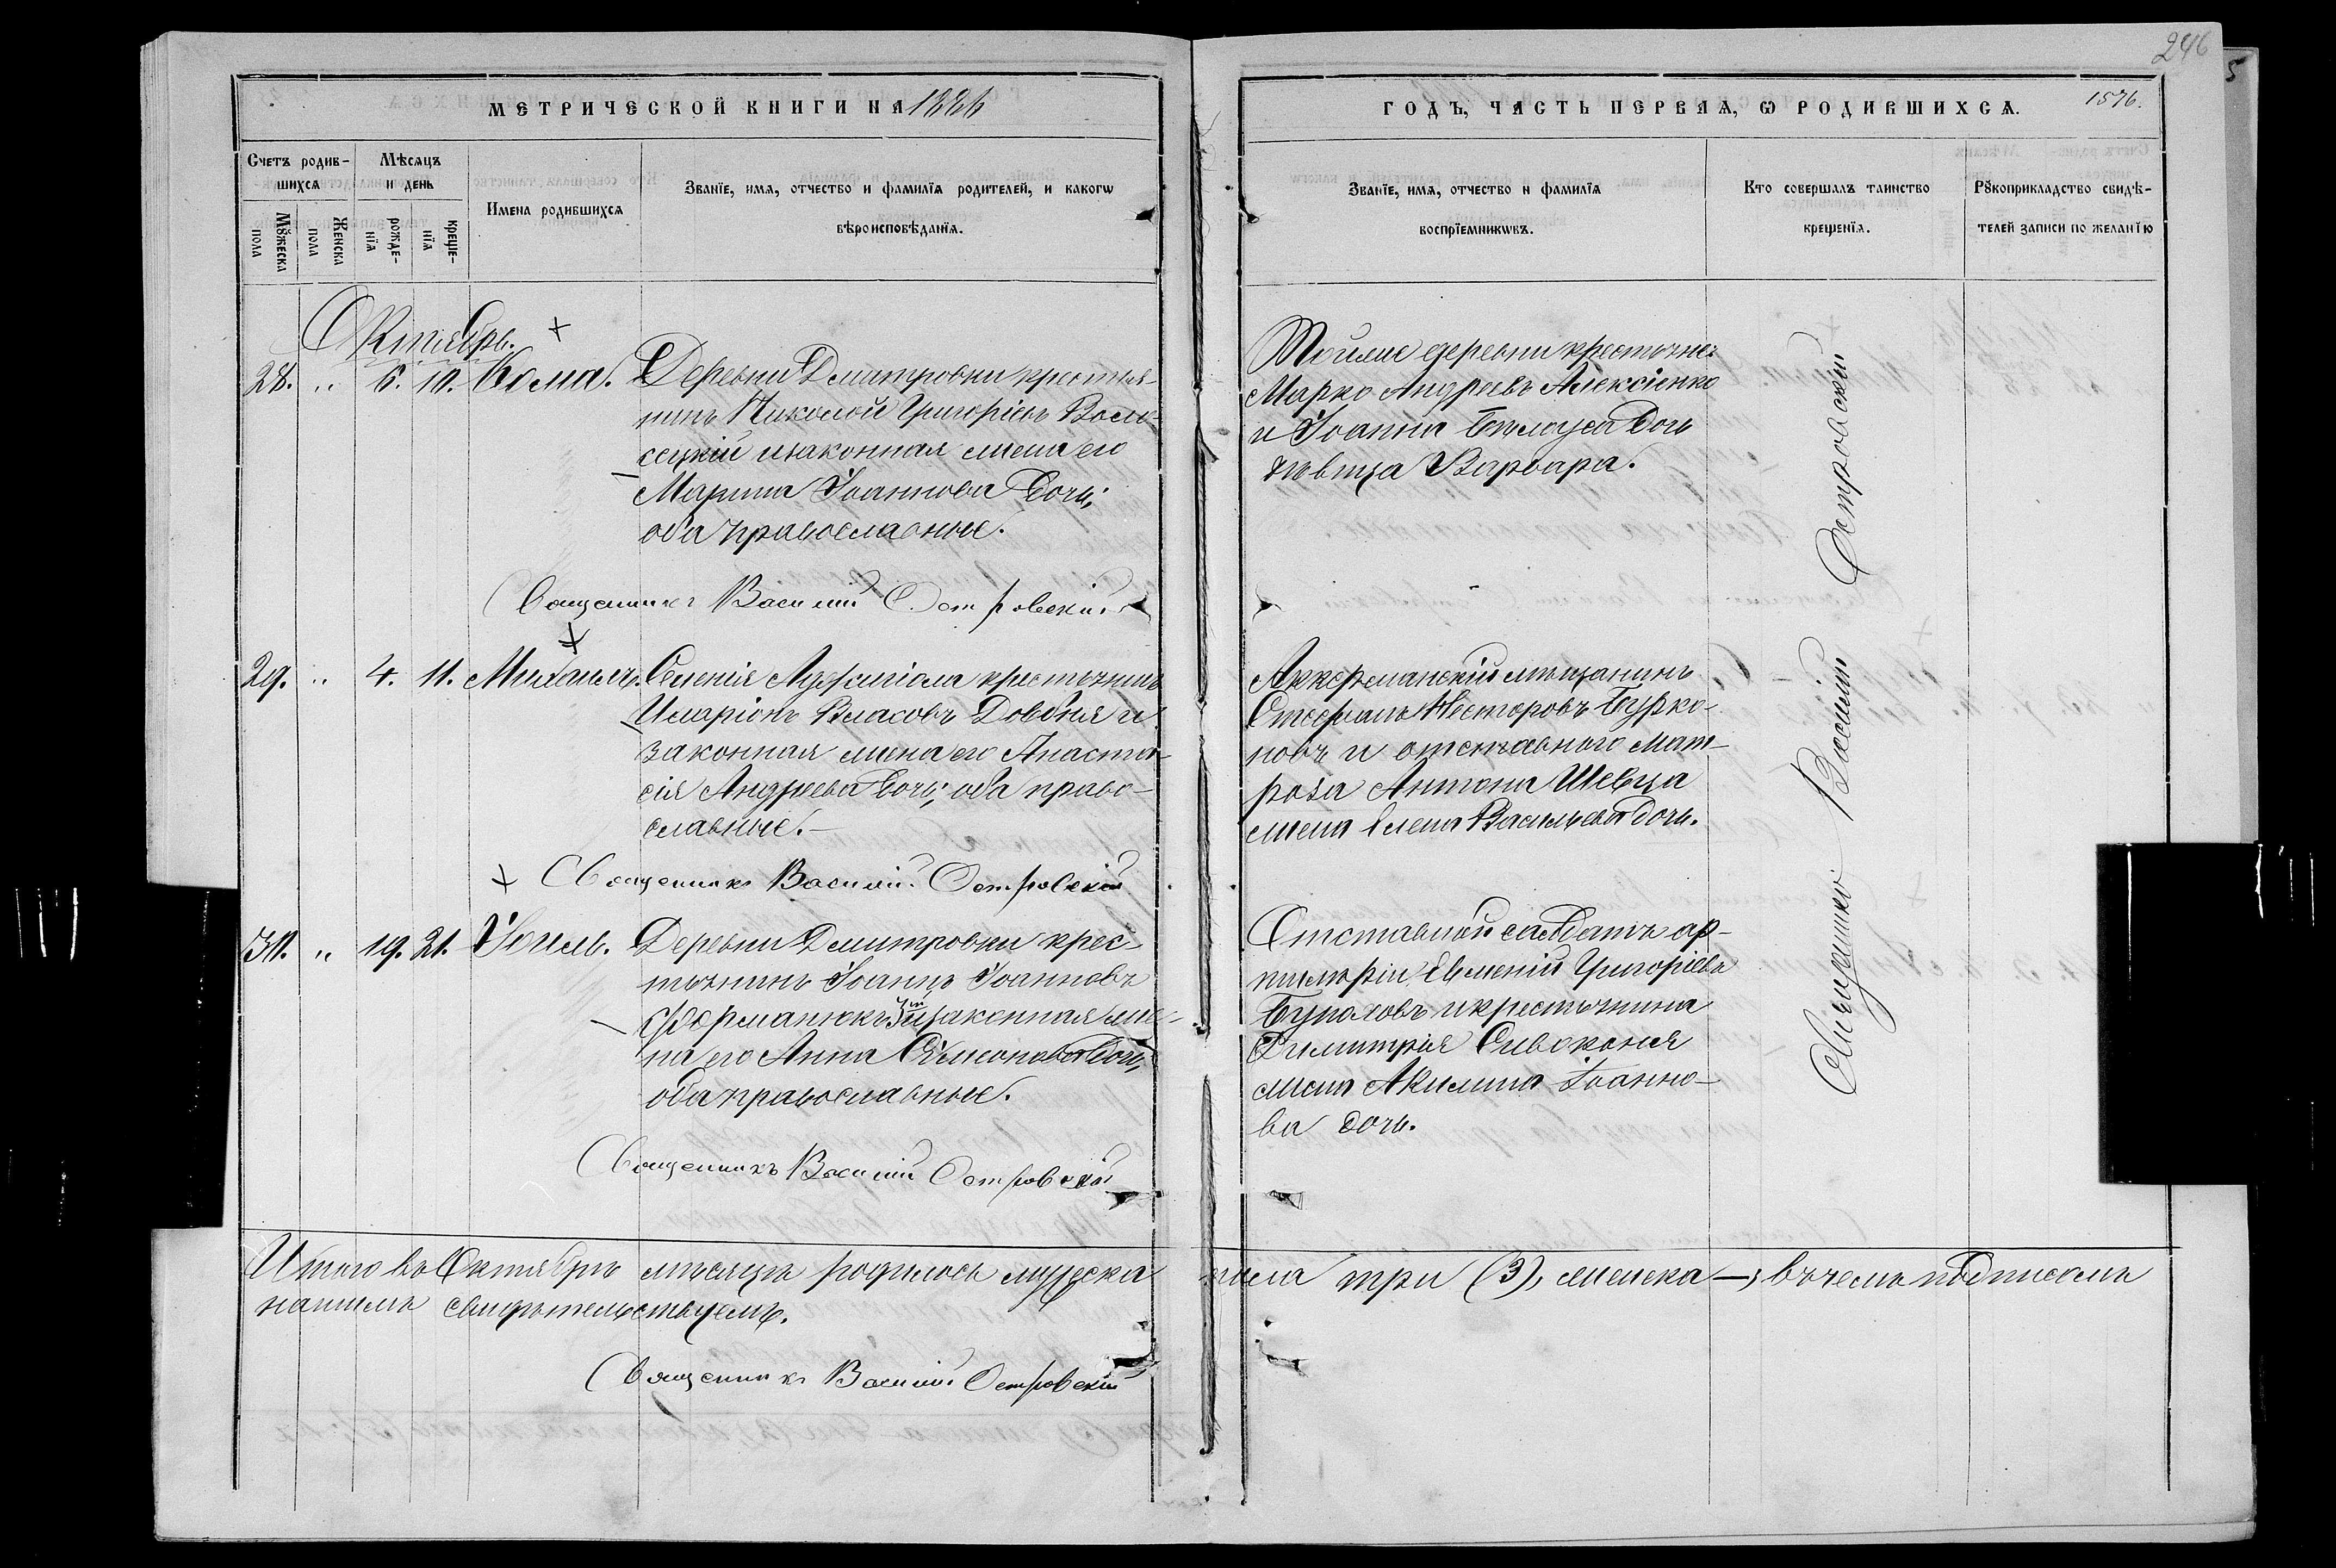 246
5
МЕТРИЧЕСКОЙ КНИГИ НА 1886
ГОДЪ, ЧАСТЬ ПЕРВАЯ, Ѡ РОДИВШИХСѦ.
1576.
Счетъ родив-
шихсѧ
Мѣсяцъ
и день
Мꙋжеска
пола
Женска
пола
рожде-
нїя
креще-
нїя
Имена родившихсѧ
Званїе, имѧ, отчество и фамилїѧ родителей, и какогѡ
вѣроисповѣданїѧ.
Званїе, имѧ, отчество и фамилїѧ
воспрїемникѡвъ.
Кто совершалъ таинство
крещенїѧ.
Рꙋкоприкладство свидѣ-
телей записи по желанїю
Октябрь.
28. " 6. 10. Ѳома.
Деревни Дмитровки крестья-
нинъ Николай Григоріевъ
и законная жена его
Марина Іоаннова дочь;
оба православные.
Священникъ Василій Островскій
Тойже деревни крестьянинъ
Марко Андреевъ Алексіенко
и Іоанна Бѣлоуса дочь
дѣвица Варвара.
29. " 4. 11. Михаилъ.
Селенія крестьянинъ
Иларіонъ Власовъ Довбня и
законная жена его Анаста-
сія Андреева дочь; оба право-
славные.-
Священникъ Василій Островскій
Аккерманскій мѣщанинъ
Стефанъ Несторовъ Бурко-
новъ и отставного мат-
роза Антона Шевца
жена Елена Васильева дочь.
30. " 19. 21. Іоиль.
Деревни Дмитровки крес-
тьянинъ Іоаннъ Іоанновъ
Фурманюкъ 3й и законная же-
на его Анна Симеонова дочь,
оба православные.
Священникъ Василій Островскій
Отставной салдатъ ар-
тилеріи Евменій Григоріевъ
и крестьянина
Димитрія Сивоконя
жена Акилина Іоанно-
ва дочь.
Священникъ Василій Островскій
Итого въ Октябрѣ мѣсяцѣ родилось мужеска пола три (3), женска —; въ чемъ подписомъ
нашимъ свидѣтельствуемъ.
Священникъ Василій Островскій